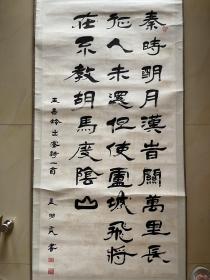 秦時明月漢旹關萬里長
征人未還但使盧城飛將
在不教胡馬度陰山
王昌齡出塞詩一首
書